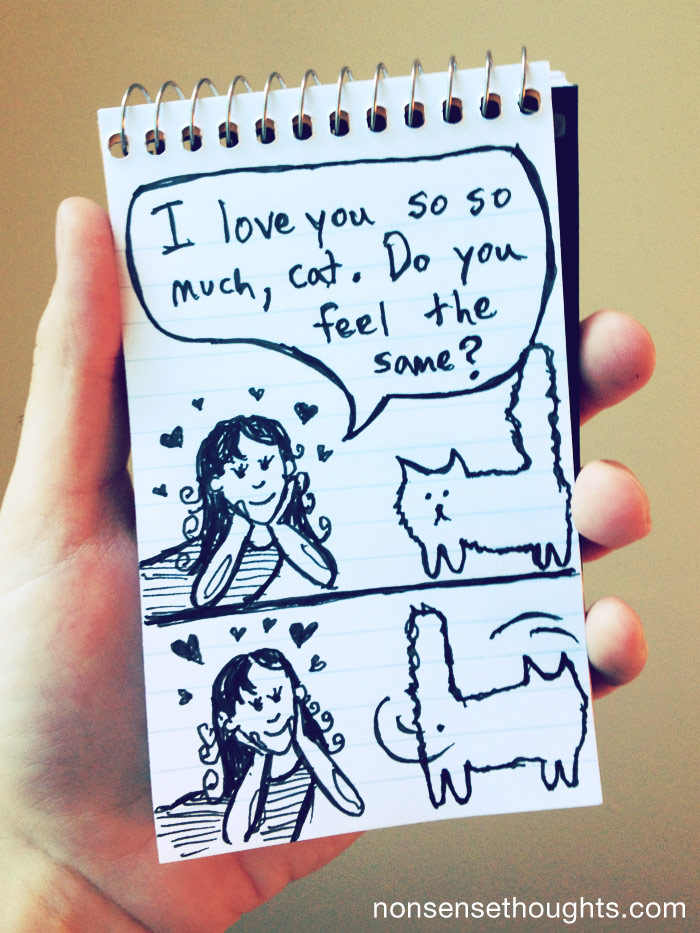 I love you so so
much, cat. Do you
feel the
same?
nonsensethoughts.com